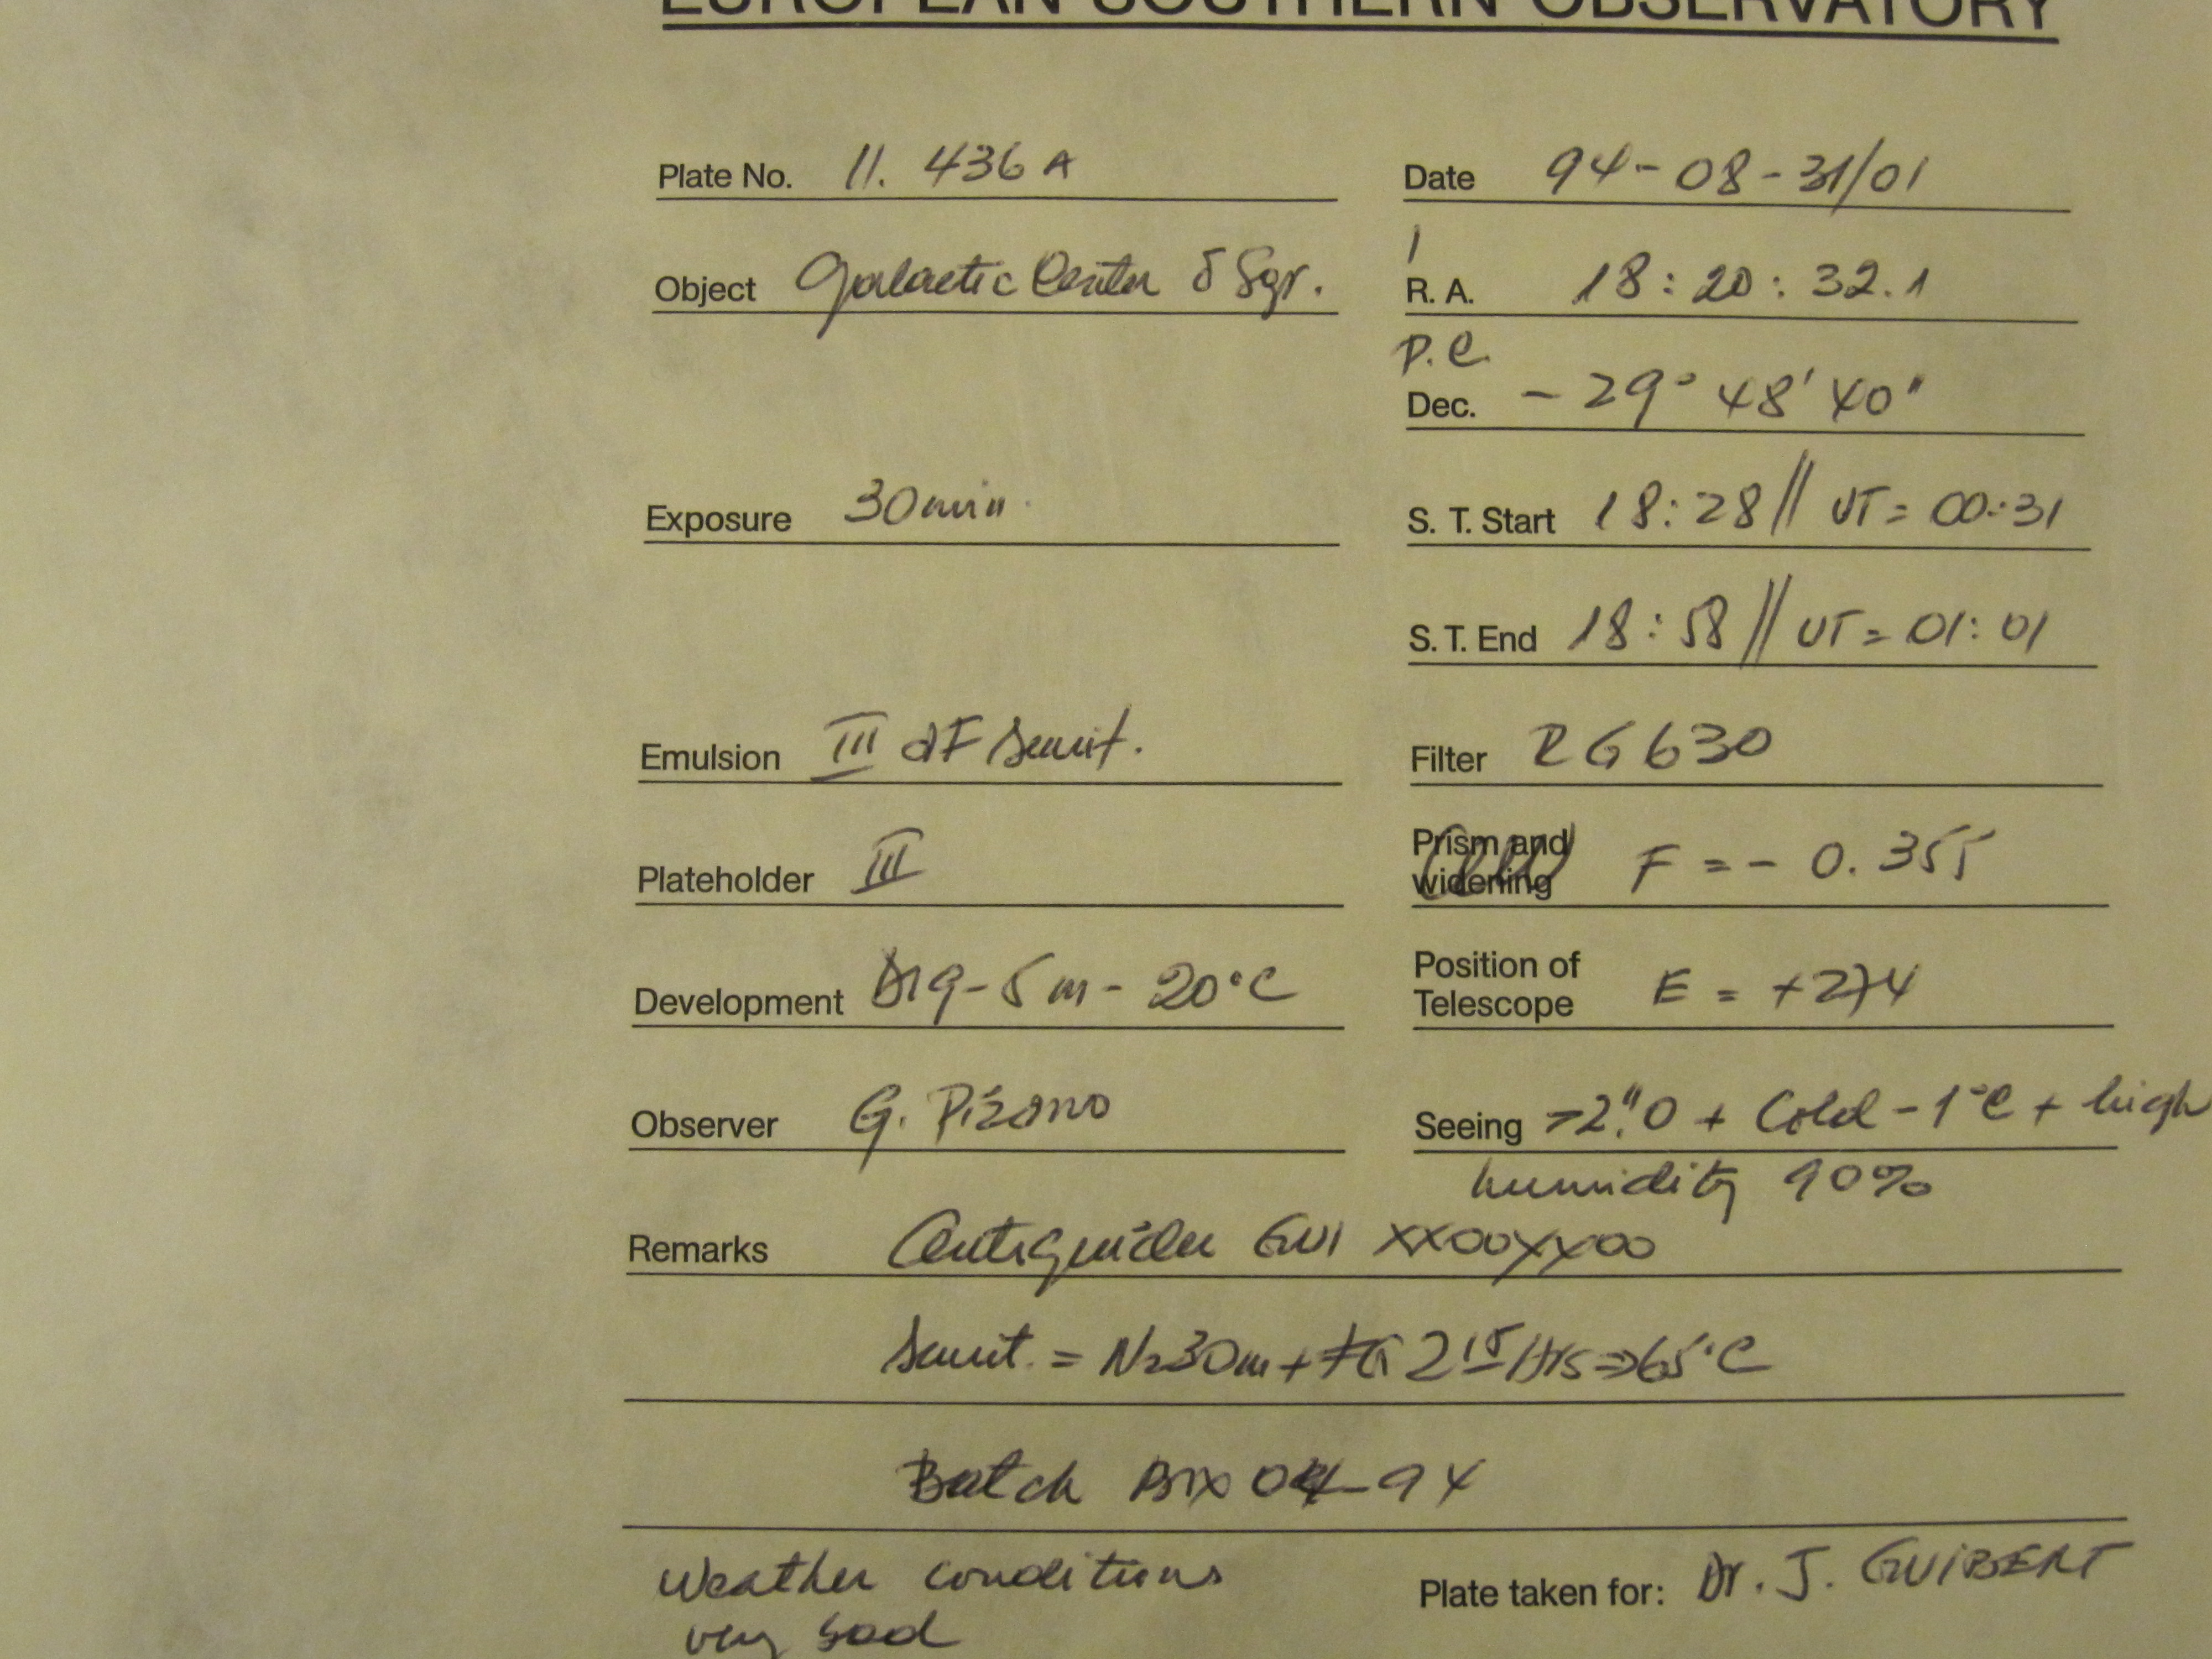 EUROPEAN SOUTHERN OBSERVATORY
Plate No. 11. 436 A
Date 94-08-31/01
Object Galactic Center δ Sgr.
R. A. 18:20:32.1
P.C.
Dec. -29° 48' 40"
Exposure 30min.
S. T. Start 18:28 // UT = 00:31
S. T. End 18:58 // UT = 01:01
Emulsion III aF Sensit.
Filter RG630
Plateholder III
Prism and widening F = - 0.355
Development D19-5m-20°C
Position of Telescope E = +274
Observer G. Pizarro
Seeing =2".0 + Cold -1°C + high
humidity 90%
Remarks GUI XX00XX00
Sensit. = N230m+ 2 15 Hrs => 65°C
Batch 04-94
Weather conditions
very bad
Plate taken for: Dr. J. GUIBERT